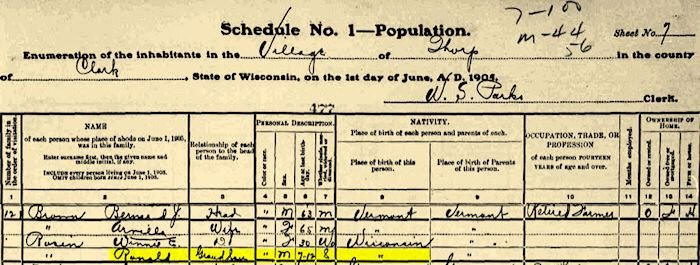 7-100
Schedule No. 1—Population.
M-44
56
Sheet No. 7
Enumeration of the inhabitants in the Village of Thorp in the county
of Clark, State of Wisconsin, on the 1st day of June, A. D. 1905,
W. S. Parks Clerk.
177
Number of family in the order of visitation.
NAME
of each person whose place of abode on June 1, 1905, was in this family.
Enter surname first, then the given name and middle initial, if any.
INCLUDE every person living on June 1, 1905.
OMIT children born since June 1, 1905.
Relationship of each person to the head of the family.
PERSONAL DESCRIPTION.
Color or race.
Sex.
Age at last birthday.
NATIVITY.
Place of birth of each person and parents of each.
Place of birth of this person.
Place of birth of Parents of this person.
OCCUPATION, TRADE, OR PROFESSION
of each person FOURTEEN YEARS of age and over.
Months employed.
OWNERSHIP OF HOME.
Owned or rented.
Owned free or mortgaged.
Farm or house.
1 2 3 4 5 6 7 8 9 10 11 12 13 14
Brown Bernard J. Head " M 63 M Vermont Vermont Retired Farmer O
" Armilla Wife " F 65 M " "
Rosin Winnie E. " F 30 Wd Wisconsin "
" Ronald Grand Son " M 7-12 S " "